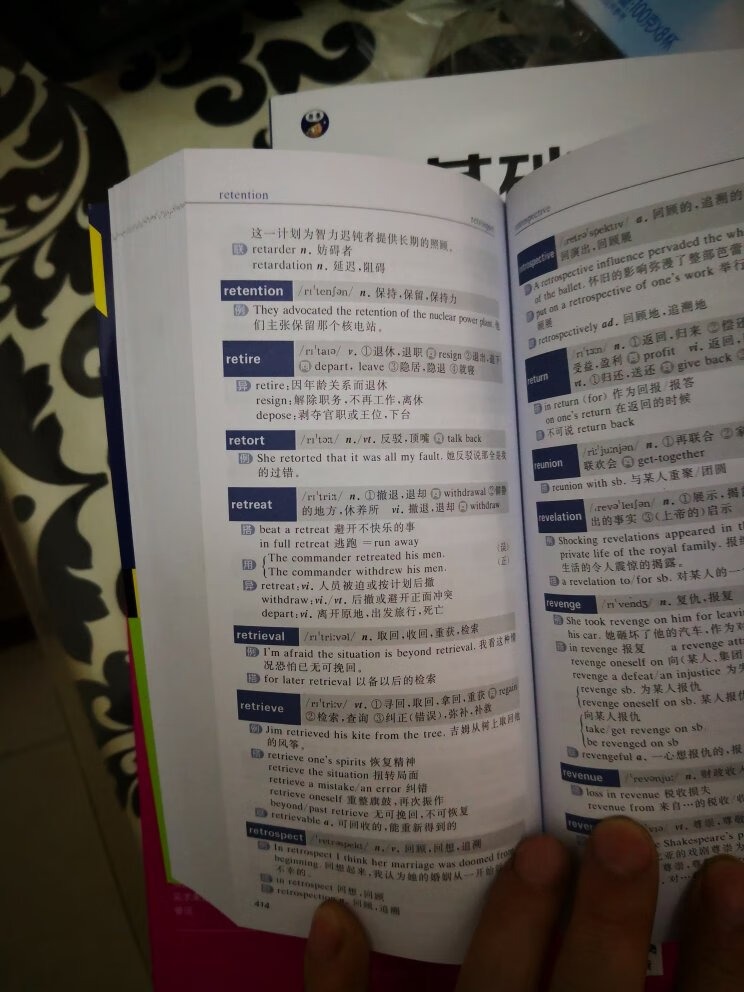 100克X8杯
基础
retention
retrospect
这一计划为智力迟钝者提供长期的照顾。
联 retarder n. 妨碍者
retardation n. 延迟,阻碍
retention /rɪˈtenʃən/ n. 保持,保留,保持力
例 They advocated the retention of the nuclear power plant. 他
们主张保留那个核电站。
retire /rɪˈtaɪə/ v. ①退休,退职 同 resign ②退出,退下
同 depart, leave ③隐居,隐退 ④就寝
异 retire:因年龄关系而退休
resign:解除职务,不再工作,离休
depose:剥夺官职或王位,下台
retort /rɪˈtɔːt/ n./vt. 反驳,顶嘴 同 talk back
例 She retorted that it was all my fault. 她反驳说那全是我
的过错。
retreat /rɪˈtriːt/ n. ①撤退,退却 同 withdrawal
的地方,休养所 vi. 撤退,退却 同 withdraw
搭 beat a retreat 避开不快乐的事
in full retreat 逃跑 =run away
用 The commander retreated his men. (误)
The commander withdrew his men. (正)
异 retreat:vi. 人员被迫或按计划后撤
withdraw:vi./vt. 后撤或避开正面冲突
depart:vi. 离开原地,出发旅行,死亡
retrieval /rɪˈtriːvəl/ n. 取回,收回,重获,检索
例 I'm afraid the situation is beyond retrieval. 我看这种情
况恐怕已无可挽回。
搭 for later retrieval 以备以后的检索
retrieve /rɪˈtriːv/ vt. ①寻回,取回,拿回,重获 同 regain
②检索,查询 ③纠正(错误),弥补,补救
例 Jim retrieved his kite from the tree. 吉姆从树上取回他
的风筝。
搭 retrieve one's spirits 恢复精神
retrieve the situation 扭转局面
retrieve a mistake/an error 纠错
retrieve oneself 重整旗鼓,再次振作
beyond/past retrieve 无可挽回,不可恢复
联 retrievable a. 可回收的,能重新得到的
retrospect /ˈretrəspekt/ n./v. 回顾,回想,追溯
例 In retrospect I think her marriage was doomed from
beginning. 回想起来,我认为她的婚姻从一开始
不幸的。
搭 in retrospect 回想,回顾
联 retrospection n. 回顾,追溯
414
retrospective
retrospective /ˌretrəˈspektɪv/ a. 回顾的,追溯的
回演出,回顾展
A retrospective influence pervaded the
of the ballet. 怀旧的影响弥漫了整部芭蕾
put on a retrospective of one's work 举行
顾展
retrospectively ad. 回顾地,追溯地
return /rɪˈtɜːn/ n. ①返回,归来 ②偿还
受益,盈利 同 profit vi. 返回,
vt. ①归还,送还 同 give back
in return (for) 作为回报/报答
on one's return 在返回的时候
不可说 return back
reunion /riːˈjuːnjən/ n. ①再联合
联欢会 同 get-together
reunion with sb. 与某人重聚/团圆
revelation /ˌrevəˈleɪʃən/ n. ①展示,揭
出的事实 ③(上帝的)启示
Shocking revelations appeared in
private life of the royal family. 报
生活的令人震惊的揭露。
a revelation to/for sb. 对某人的一
revenge /rɪˈvendʒ/ n. 复仇,报复
She took revenge on him for leaving
his car. 她砸坏了他的汽车,作为对
in revenge 报复 a revenge
revenge oneself on 向(某人、集团
revenge a defeat/an injustice 为
revenge sb. 为某人报仇
revenge oneself on sb. 向某人报仇
向某人报仇
take/get revenge on sb.
be revenged on sb
revengeful a. 一心想报仇的,报
revenue /ˈrevənjuː/ n. 财政收入
loss in revenue 税收损失
revenue from 来自…的税收/收
vt. 尊崇,尊敬
Shakespeare's
亚的戏剧尊崇为